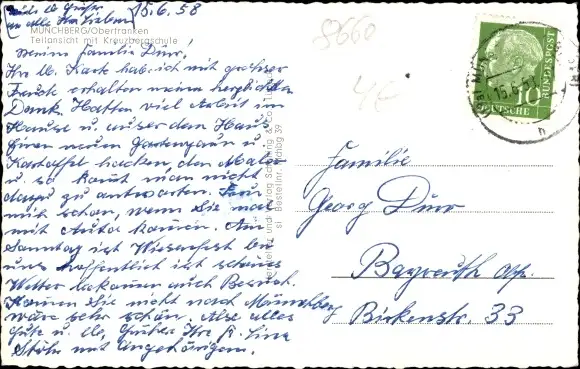 15.6.58
an alle Ihre Lieben
MÜNCHBERG/Oberfranken
Teilansicht mit Kreuzbergschule
Meine Familie Dürr!
Ihre lb. Karte hab ich mit großer
Freude erhalten meinen herzlichsten
Dank. Hatten viel Arbeit im
Hause u. außer dem Haus
neuen Gartenzaun u.
Kartoffel hacken, den Maler
u. so kommt man nicht
dazu zu antworten. Freu
mich schon, wenn Sie mal
mit Auto kommen. Am
Sonntag ist Wiesenfest bei
uns hoffentlich ist schönes
Wetter bekommen auch Besuch.
Kommen Sie nicht nach Münchberg
wäre sehr schön. Also alles
Gute u. lb. Grüße Ihre
mit Angehörigen.
8660
4€
DEUTSCHE
BUNDESPOST
10
Familie
Georg Dürr
Bayreuth
Birkenstr. 33